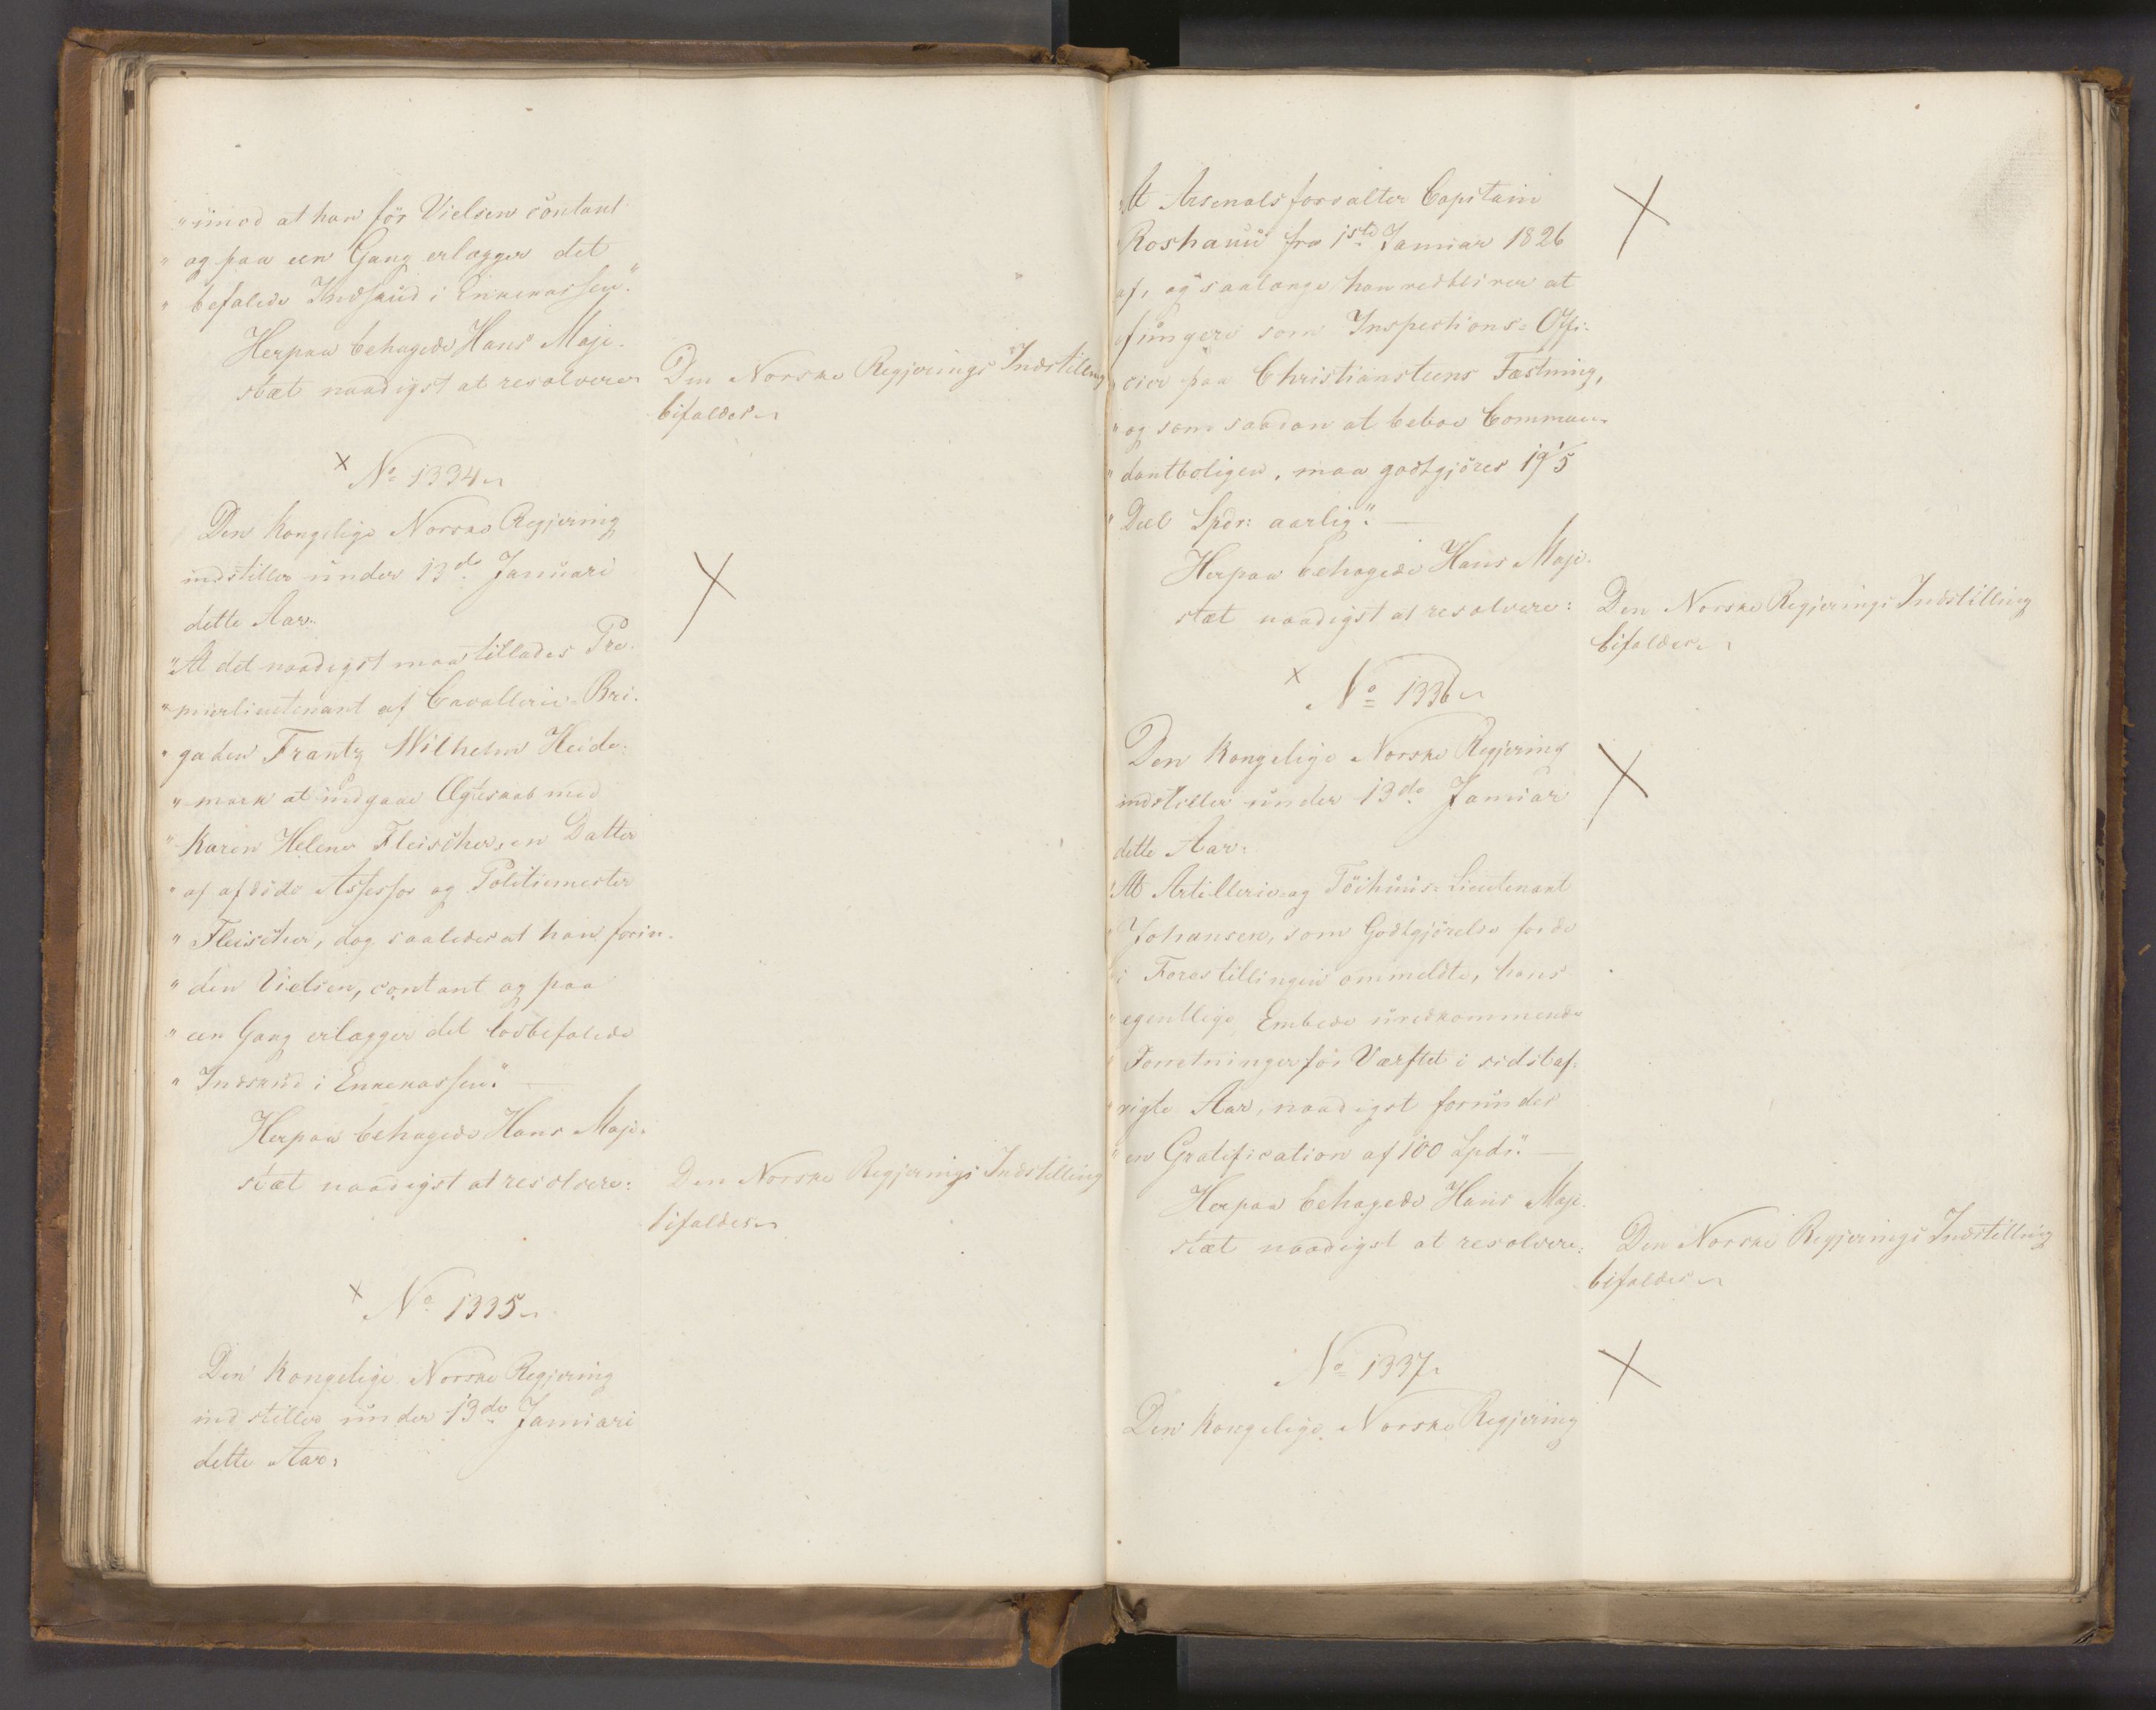 "imod at han før Vielsen contant
"og paa een Gang erlægger det
"befalede Indskud i Enkekassen."
Herpaa behagede Hans Maje-
stæt naadigst at resolvere:
Den Norske Regjerings Indstilling
bifaldes.
× No 1334.
Den Kongelige Norske Regjering
indstiller under 13de Januari
dette Aar:
"At det naadigst maa tillades Pre-
"mierlieutenant af Cavallerie-Bri-
"gaden Frantz Wilhelm Heide-
"mark at indgaae Ægteskab med
"Karen Helene Fleischer, en Datter
"af afdøde Assessor og Politiemester
"Fleischer, dog saaledes at han forin-
"den Vielsen, contant og paa
"een Gang erlægger det lovbefalede
"Indskud i Enkekassen." —
Herpaa behagede Hans Maje-
stæt naadigst at resolvere:
Den Norske Regjerings Indstilling
bifaldes.
× No 1335.
Den Kongelige Norske Regjering
indstiller under 13de Januari
dette Aar:
"At Arsenalsforvalter Capitain
Roshauw fra 1ste Januar 1826
af, og saalænge han vedbliver at
fungere som Inspections-Offi-
"cier paa Christiansteens Fæstning,
"og som saadan at beboe Comman-
"dantboligen, maa godtgjøres 19 1/5
"Deel Spdr: aarlig." —
Herpaa behagede Hans Maje-
stæt naadigst at resolvere:
Den Norske Regjerings Indstilling
bifaldes.
× No 1336.
Den Kongelige Norske Regjering
indstiller under 13de Januar
dette Aar:
"At Artillerie- og Töihuus-Lieutenant
"Johansen, som Godtgjørelse for de
"i Forestillingen ommeldte, hans
"egentlige Embede uvedkommende
"Forretninger for Værftet i sidstaf-
"vigte Aar, naadigst forundes
"en Gratification af 100 Spdr." —
Herpaa behagede Hans Maje-
stæt naadigst at resolvere:
Den Norske Regjerings Indstilling
bifaldes.
No 1337.
Den Kongelige Norske Regjering